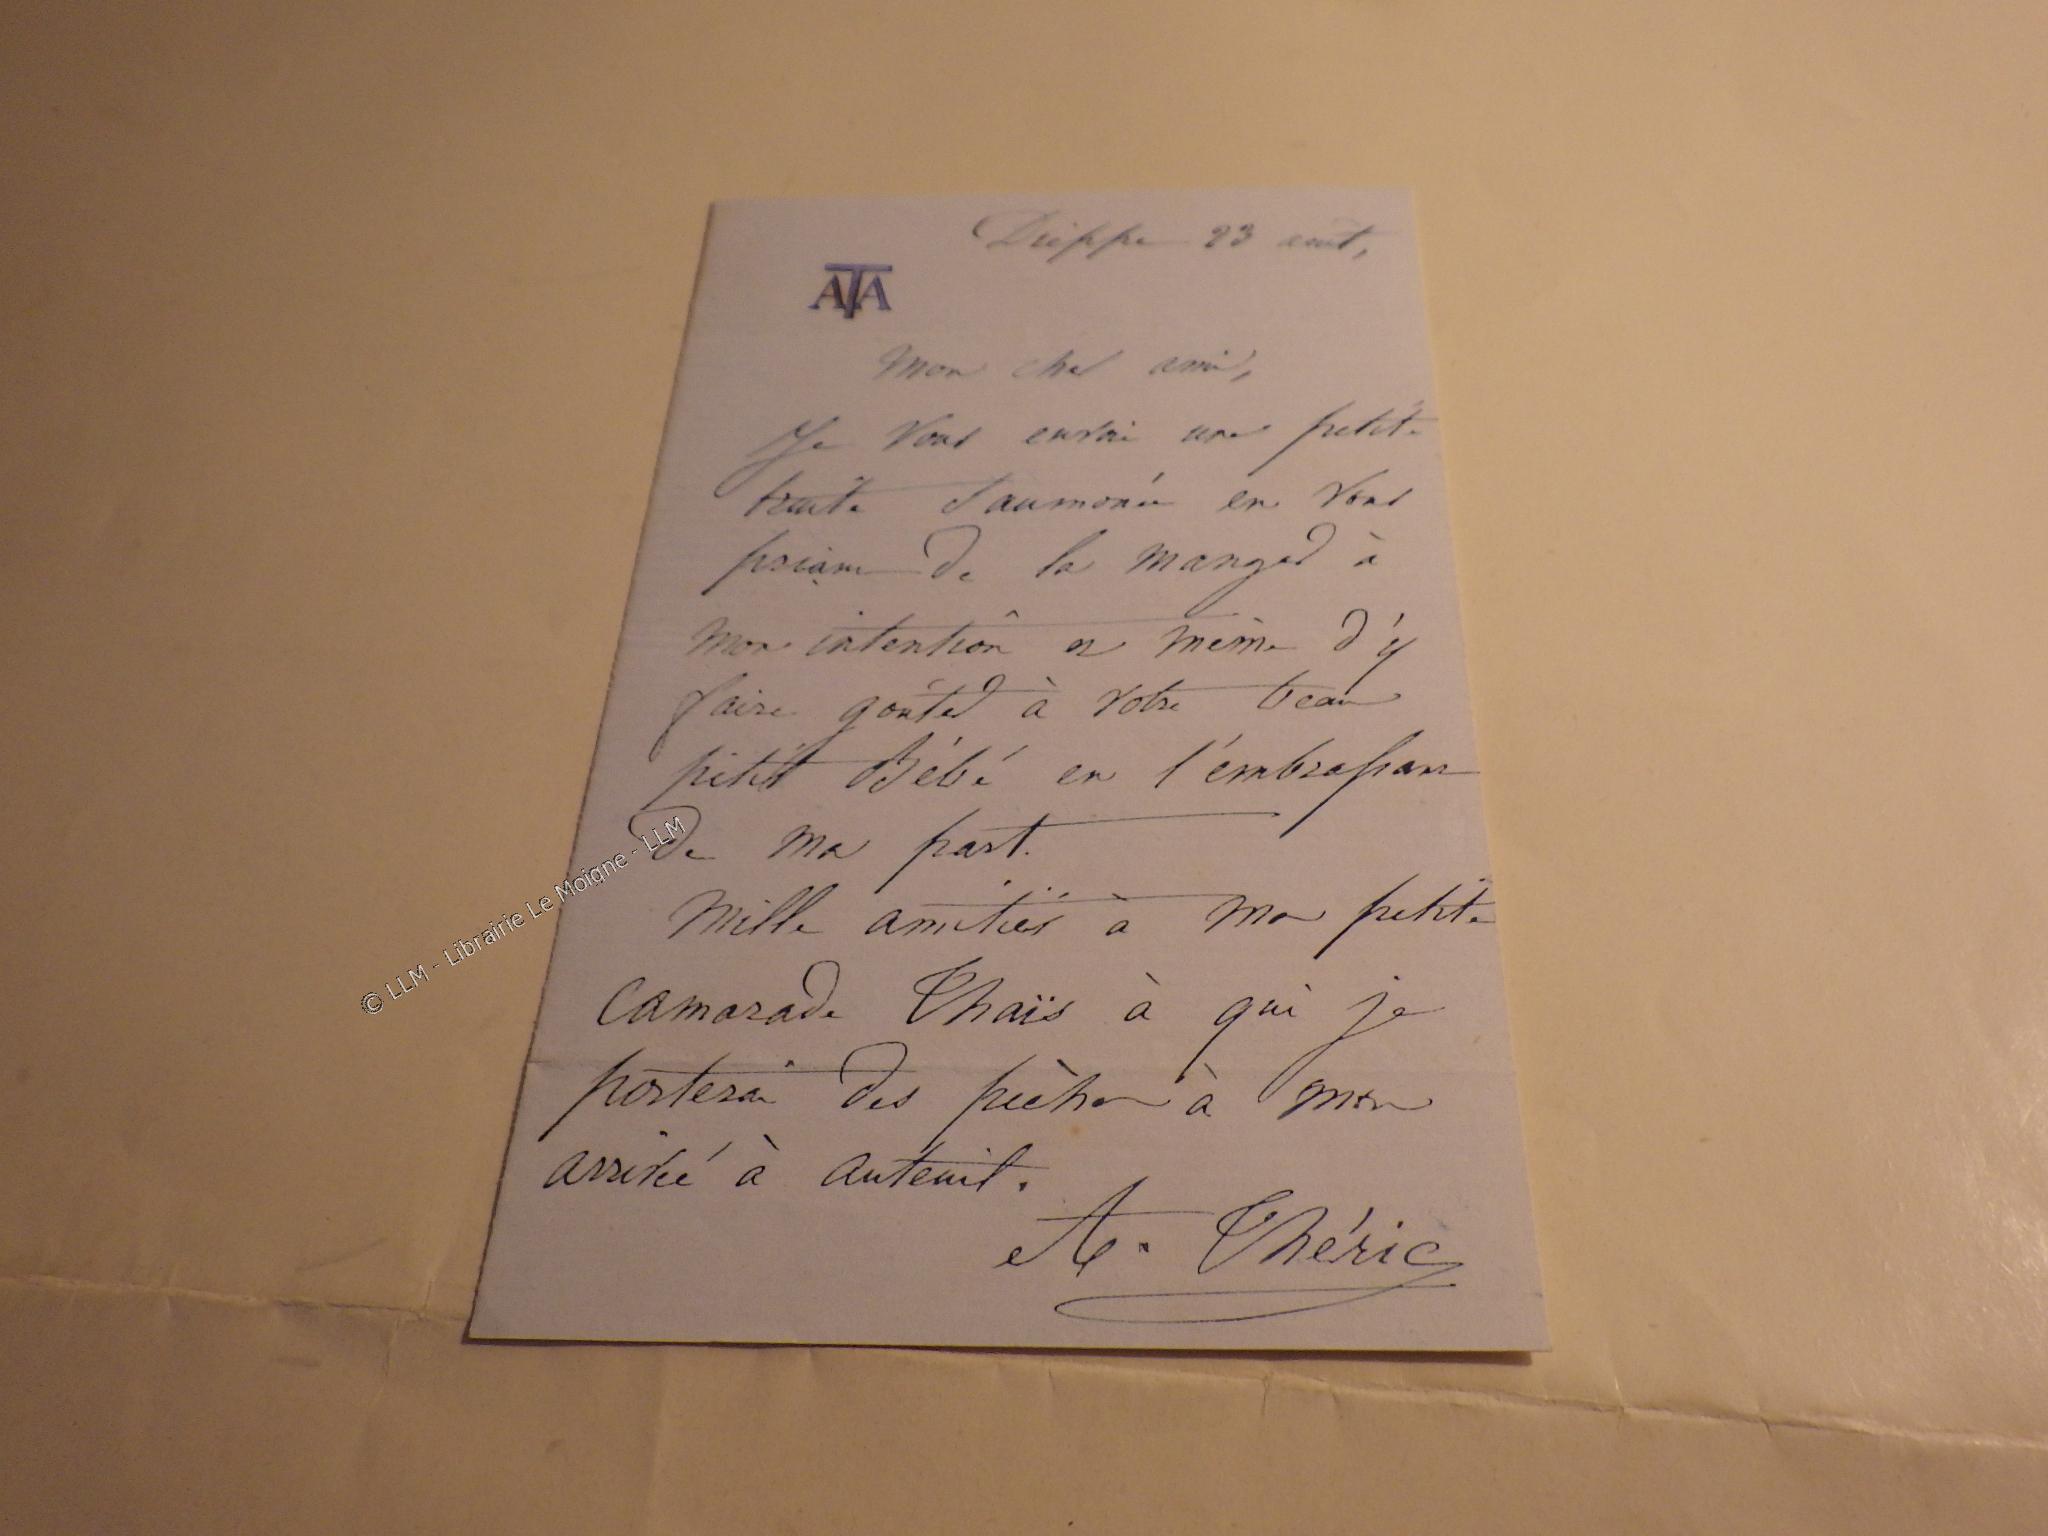 Dieppe 23 août,
ATA
Mon cher ami,
Je vous envoi une petite
truite saumonée en vous
priant de la manger à
mon intention et même d'y
faire goûter à votre beau
petit Bébé en l'embrassant
de ma part.
Mille amitiés à ma petite
camarade Thaïs à qui je
porterai des pêches à mon
arrivée à auteuil.
A. Théric
© LLM - Librairie Le Moigne - LLM